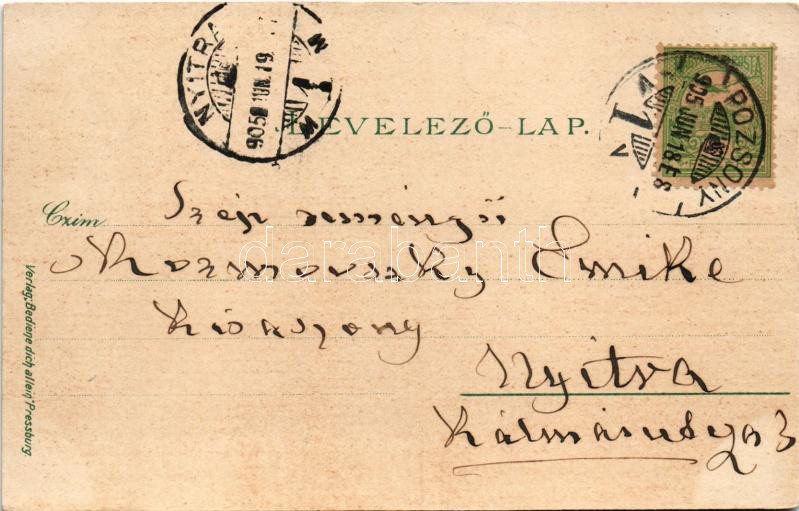 NYITRA
905 JUN. 19
LEVELEZŐ-LAP.
POZSONY 1
905 JUN 18 E 8
Czim
Szép reményű
Kozmovszky Emike
Kisaszony
Nyitra
Kálmán
3
Verlag „Bediene dich allein" Pressburg.
darabanth